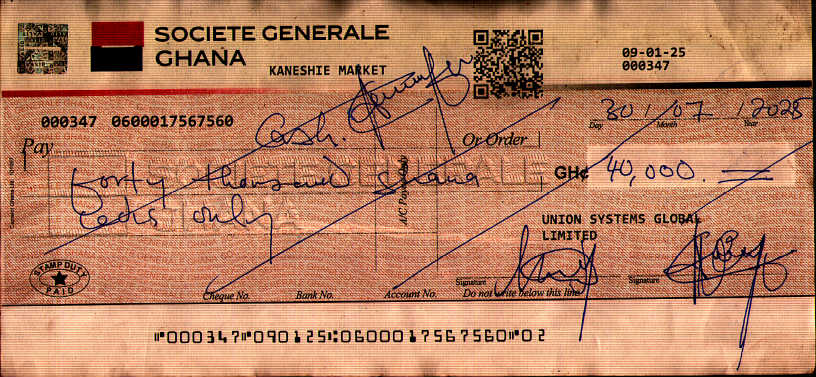 SOCIETE GENERALE
GHANA
KANESHIE MARKET
09-01-25
000347
000347 0600017567560
30 / 07 / 2025
Day Month Year
Pay Cash. Or Order
forty thousand ghana
cedis only
GH¢ 40,000.
A/C Payee Only
UNION SYSTEMS GLOBAL
LIMITED
STAMP DUTY
PAID
Signature Signature
Cheque No. Bank No. Account No. Do not write below this line
⑈000347⑈090125⑆0600017567560⑈02